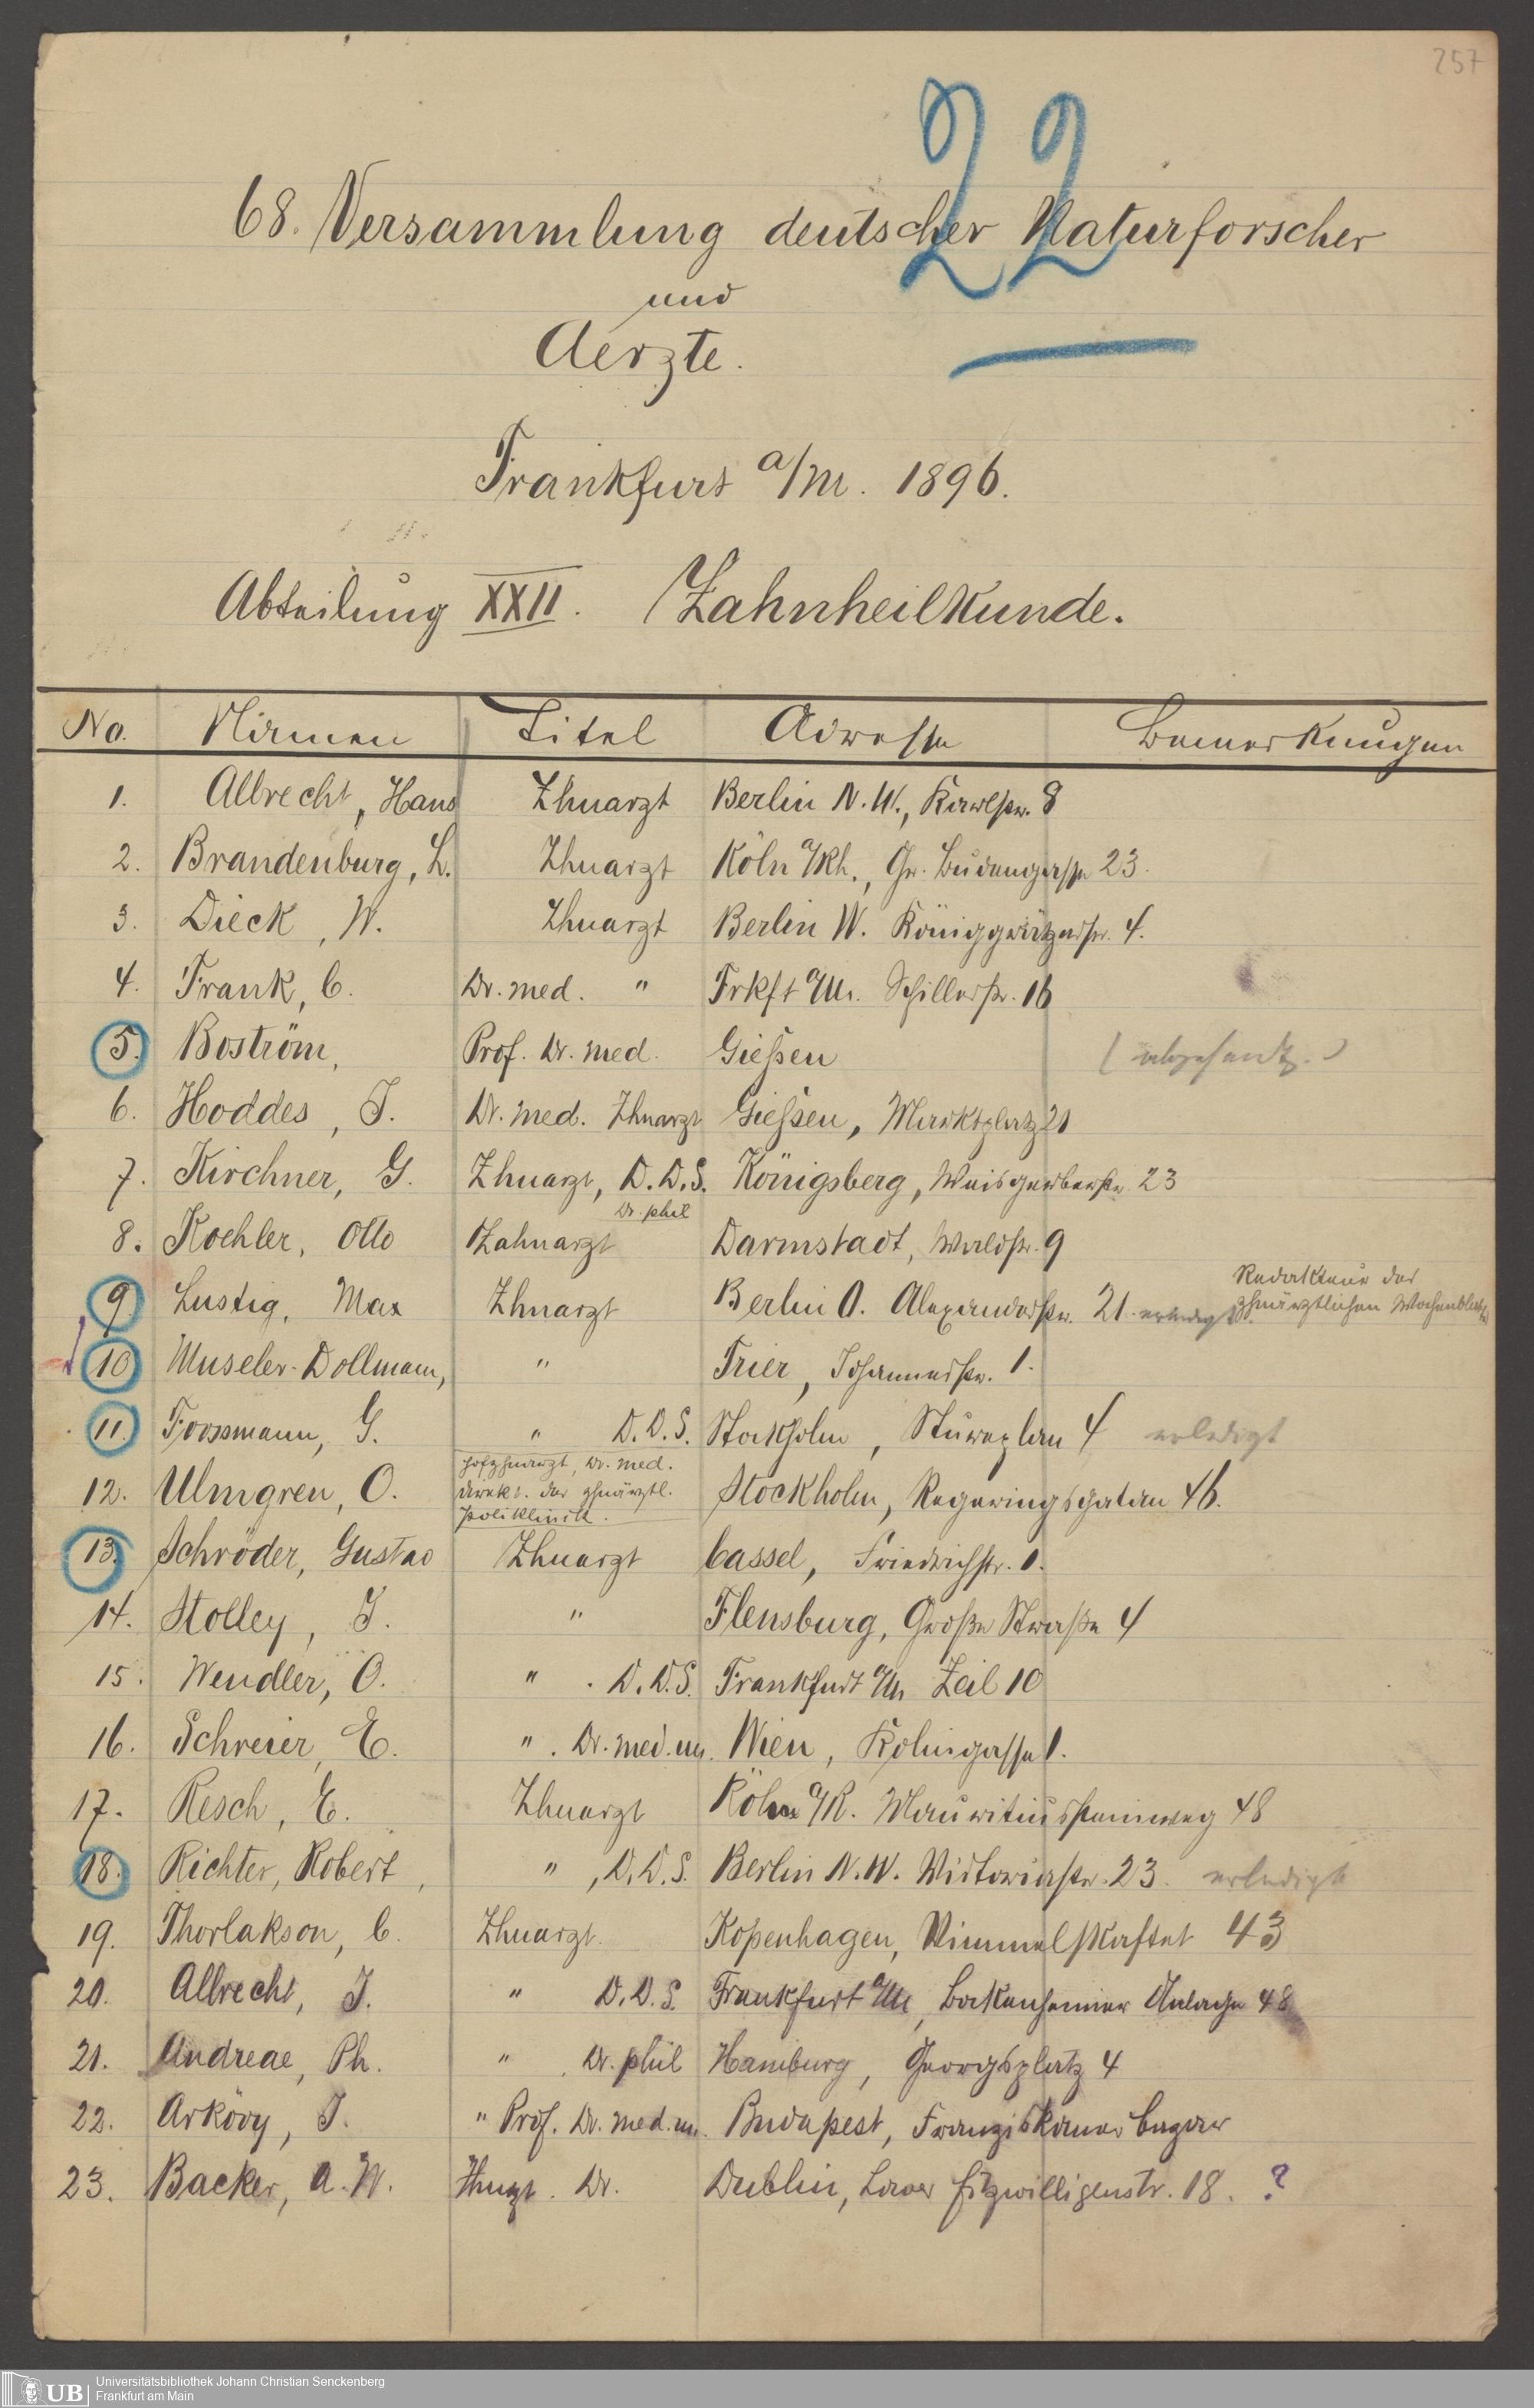 257
22
68. Versammlung deutscher Naturforscher
und
Aerzte.
Frankfurt a/M. 1896.
Abteilung XXII. Zahnheilkunde.
No. Namen Titel Adresse Bemerkungen
1. Albrecht, Hans Zhnarzt Berlin N.W., Karlstr. 8
2. Brandenburg, L. Zhnarzt Köln a/Rh., Gr. Budengasse 23.
3. Dieck, W. Zhnarzt Berlin W. Königgrätzerstr. 4.
4. Frank, C. Dr. med. " Frkft a/M. Schillerstr. 16
5. Boström, Prof. Dr. med. Gießen (abgesandt.)
6. Hoddes, J. Dr. med. Zhnarzt Gießen, Marktplatz 21
7. Kirchner, G. Zhnarzt, D.D.S. Königsberg, Weisgerberstr. 23
Dr. phil
8. Koehler, Otto Zahnarzt Darmstadt, Waldstr. 9
9. Lustig, Max Zhnarzt Berlin O. Alexanderstr. 21. erledigt Redakteur des
zhnärztlichen Wochenblattes
10 Museler-Dollmann, " Trier, Johannesstr. 1.
11. Forssmann, G. " D.D.S. Stockholm, Stureplan 4 erledigt
12. Ulmgren, O. Hofzhnarzt, Dr. med.
Direkt. der zhnärztl.
Poliklinik. Stockholm, Regeringsgatan 46.
13. Schröder, Gustav Zhnarzt Cassel, Friedrichstr. 1.
14. Stolley, J. " Flensburg, Große Straße 4
15. Wendler, O. " . D.D.S. Frankfurt a/M Zeil 10
16. Schreier, E. " . Dr. med. un. Wien, Kolingasse 1.
17. Resch, E. Zhnarzt Köln a/R. Mauritiussteinweg 48
18. Richter, Robert, " , D.D.S. Berlin N.W. Victoriastr. 23. erledigt
19. Thorlakson, C. Zhnarzt. Kopenhagen, Vimmelskaftet 43
20. Albrecht, J. " D.D.S. Frankfurt a/M, Bockenheimer Anlage 48
21. Andreae, Ph. " . Dr. phil Hamburg, Georgsplatz 4
22. Arkövy, J. " Prof. Dr. med. un. Budapest, Franziskaner bazar
23. Backer, A.W. Zhnzt. Dr. Dublin, Lower fitzwilligenstr. 18. ?
UB Universitätsbibliothek Johann Christian Senckenberg
Frankfurt am Main